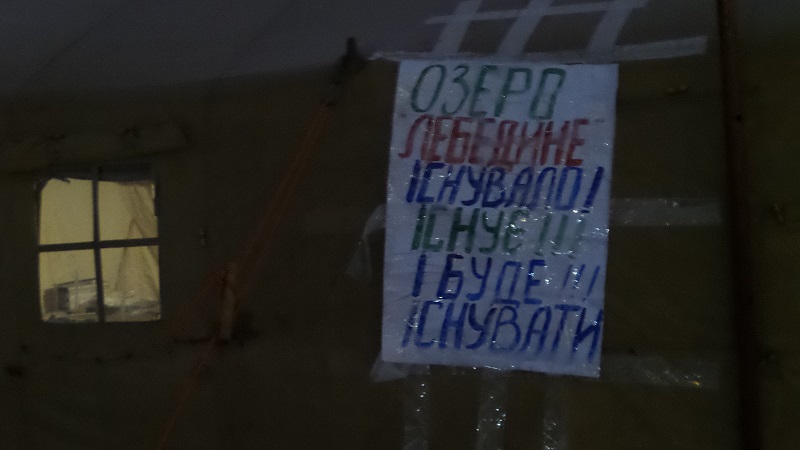 ОЗЕРО
"ЛЕБЕДИНЕ"
ІСНУВАЛО!
ІСНУЄ!!!
І БУДЕ!!!
ІСНУВАТИ